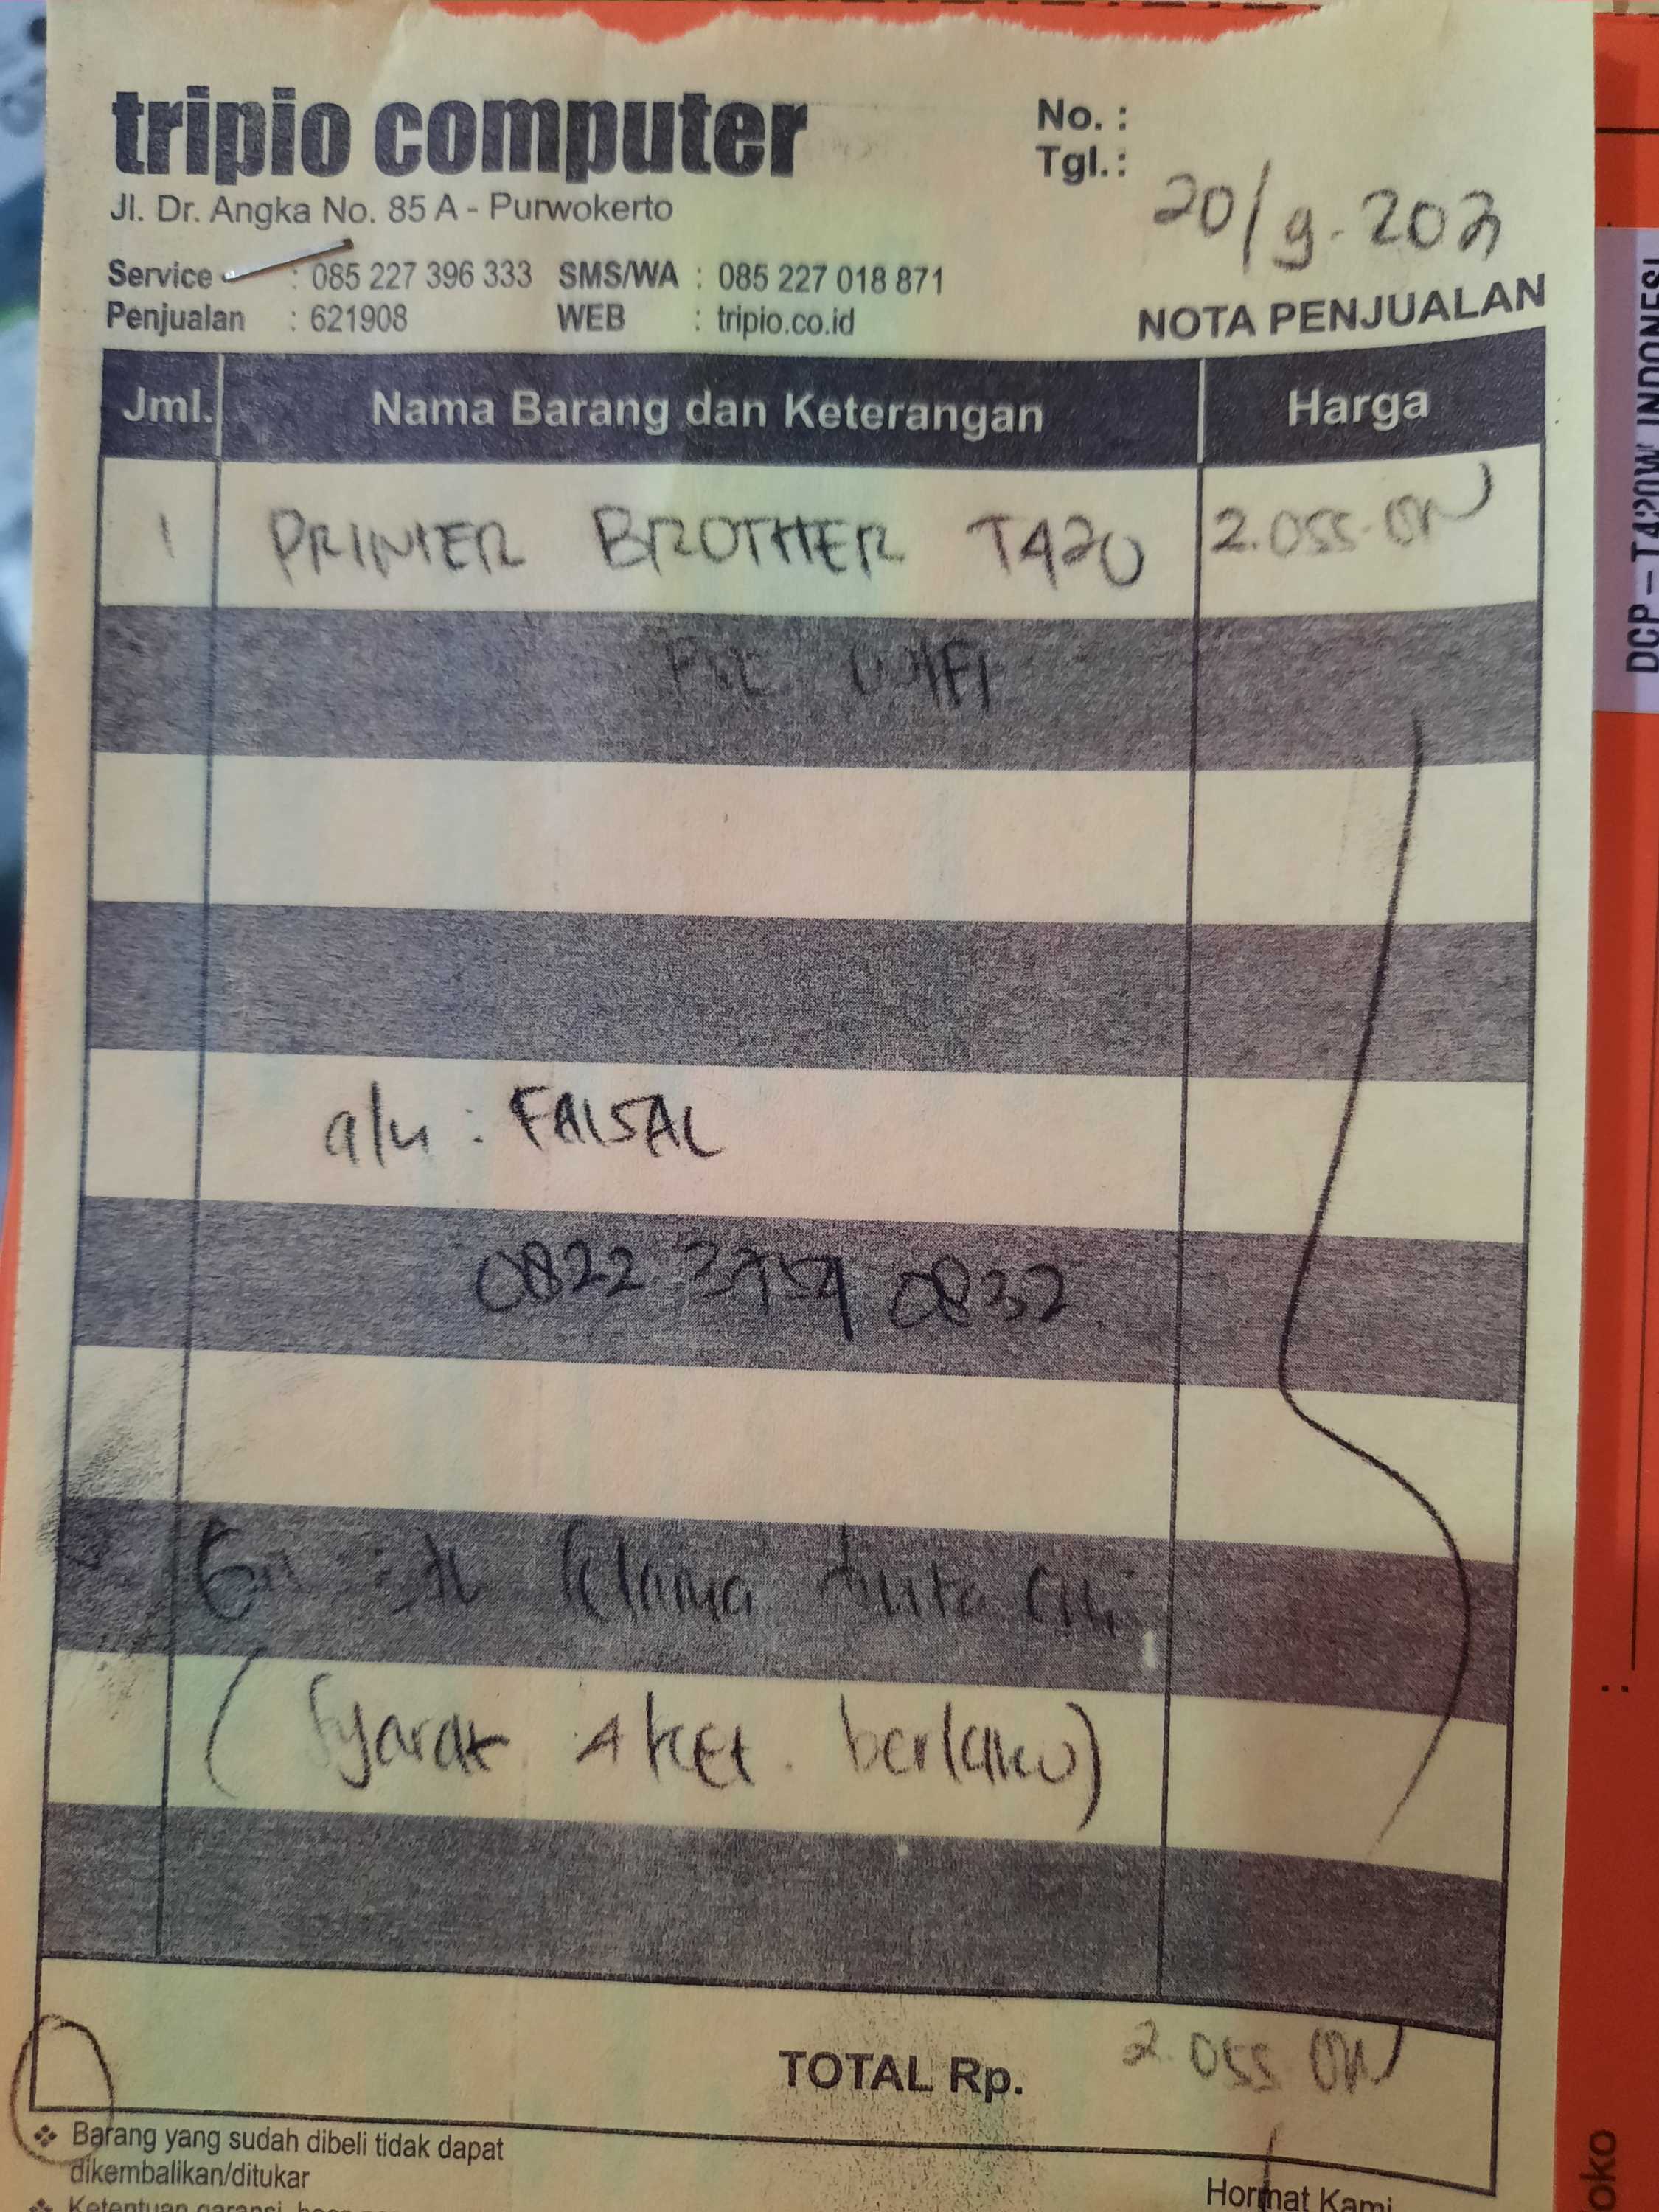 tripio computer
Jl. Dr. Angka No. 85 A - Purwokerto
Service : 085 227 396 333 SMS/WA : 085 227 018 871
Penjualan : 621908 WEB : tripio.co.id
No. :
Tgl. : 20/9-202
NOTA PENJUALAN
Jml. Nama Barang dan Keterangan Harga
1 PRINTER BROTHER T420 2.055.000
WIFI
a/n : FAISAL
0822 3757 0832
(Syarat & ket. berlaku)
TOTAL Rp. 2.055.000
❖ Barang yang sudah dibeli tidak dapat
dikembalikan/ditukar
❖ Ketentuan garansi
Hormat Kami
DCP-T420W INDONESI
oko